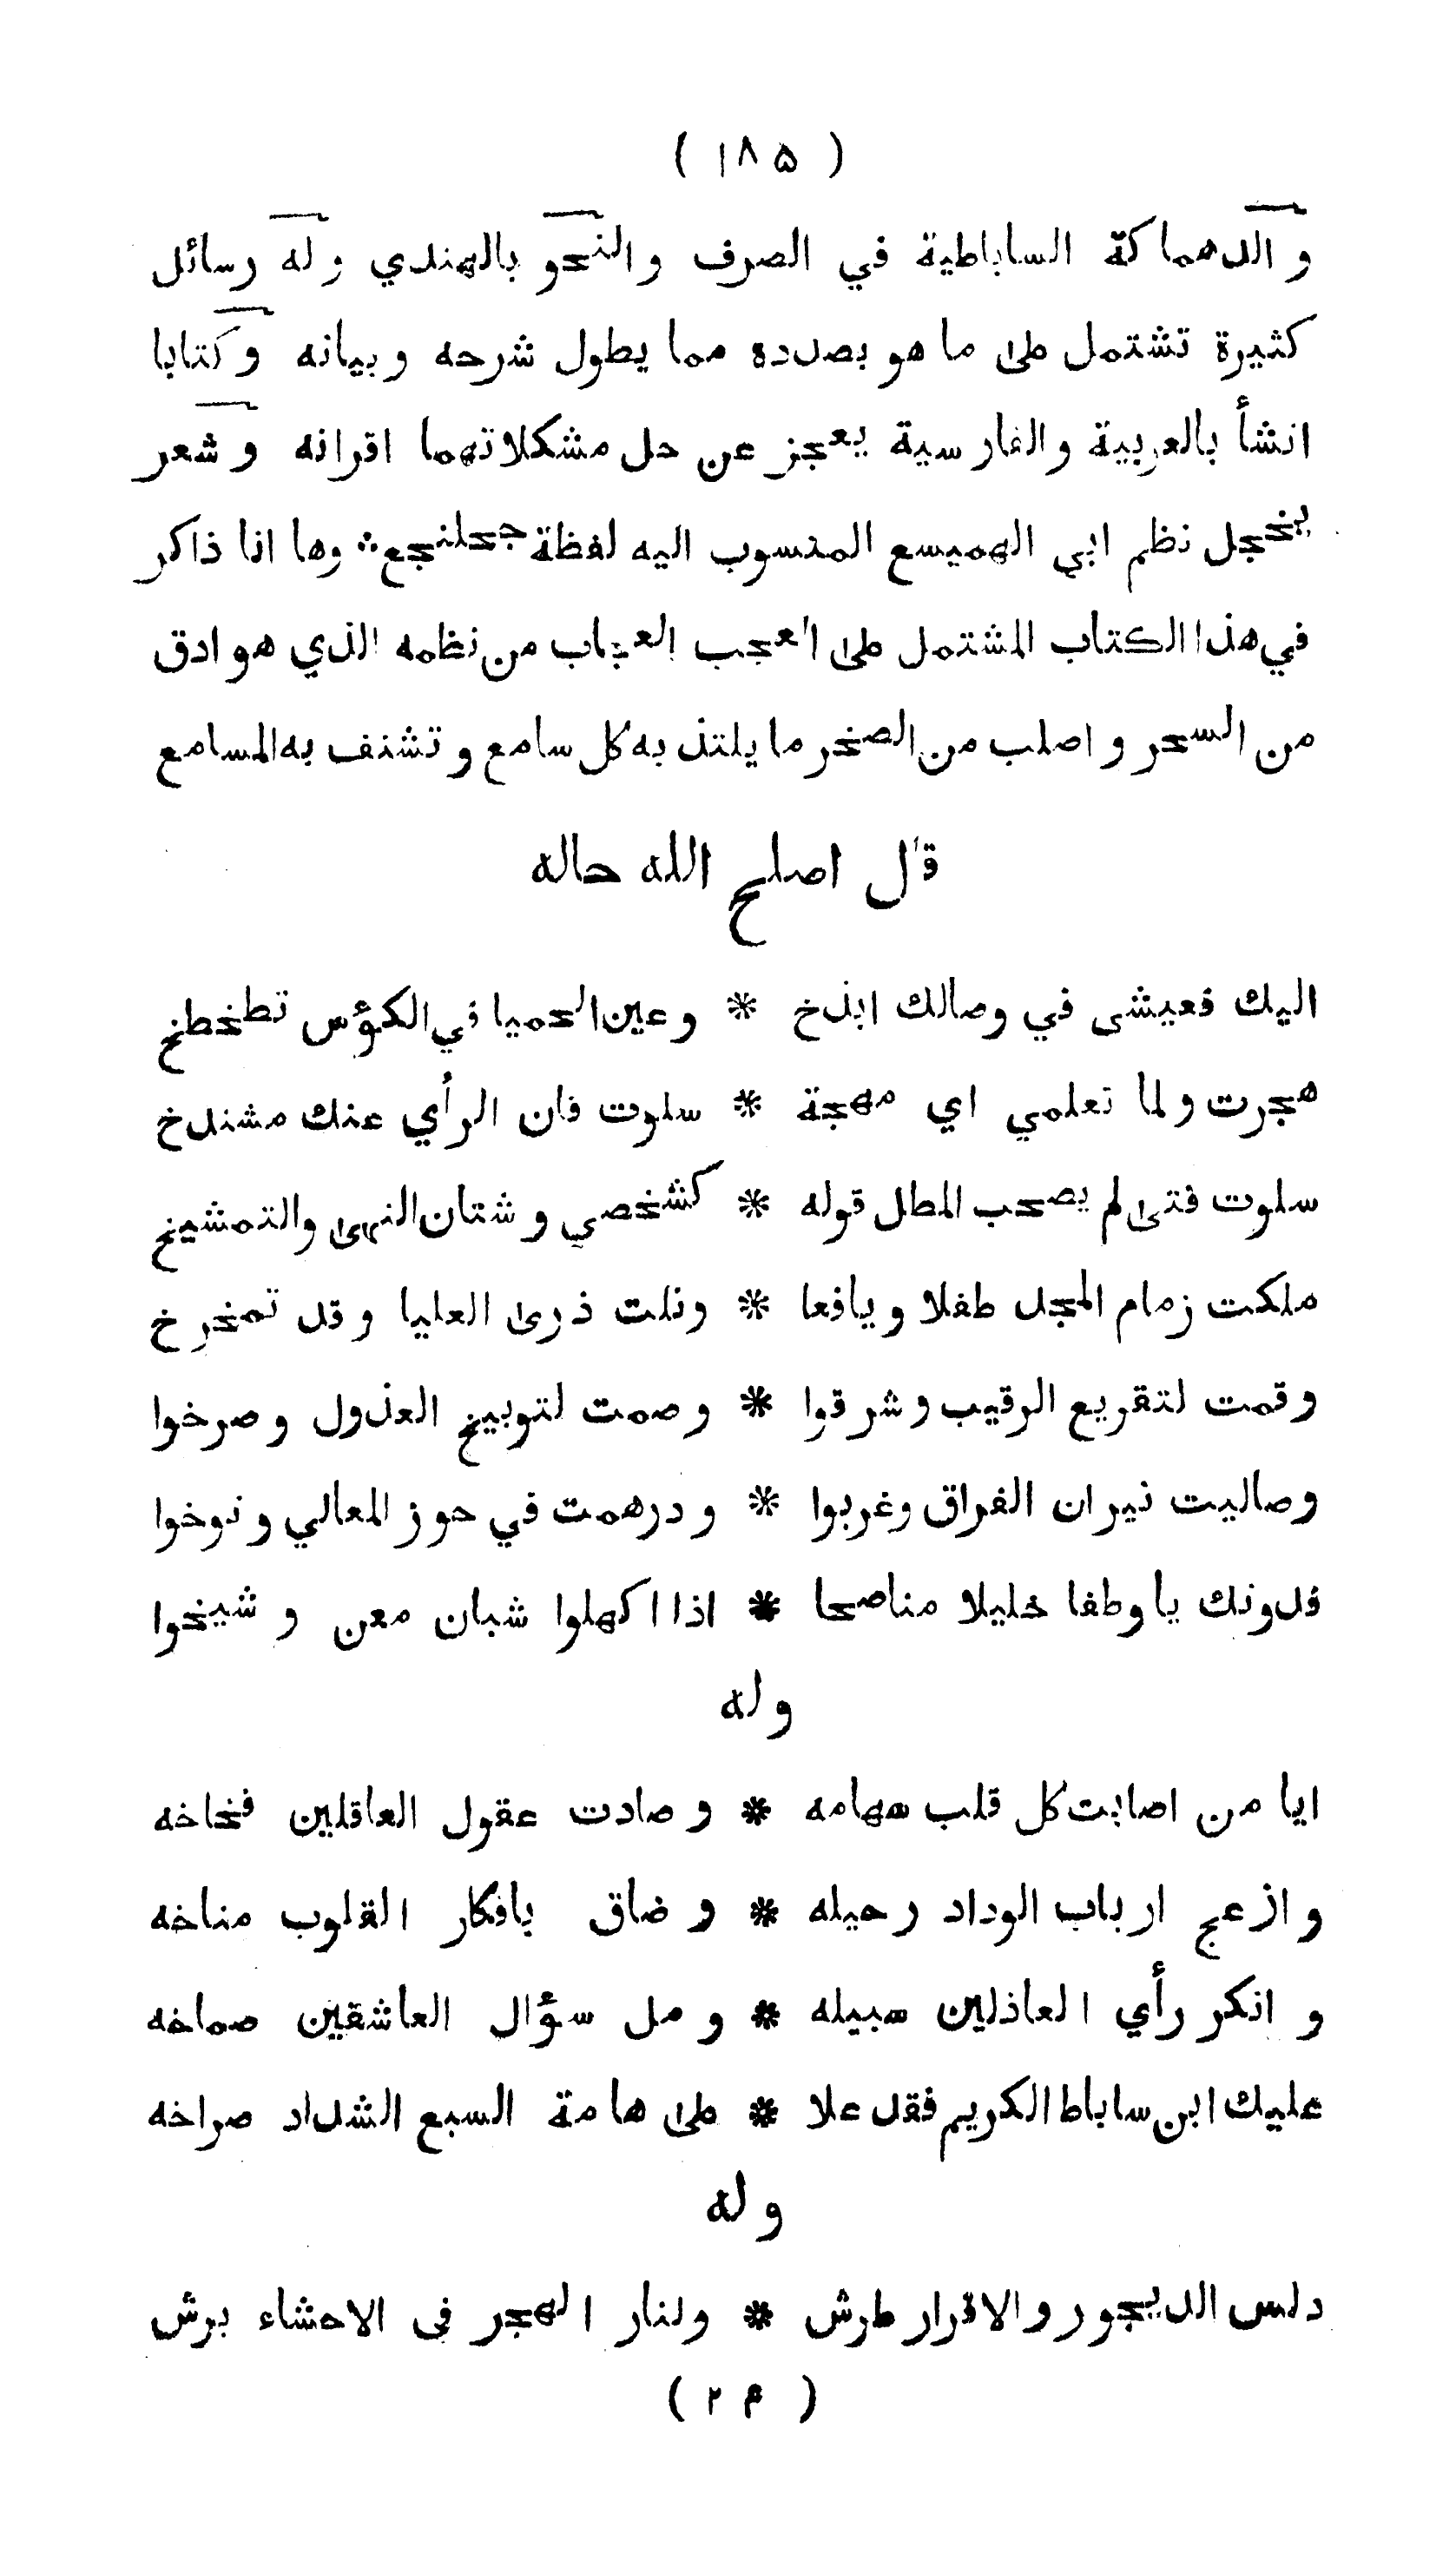 ( ١٨٥ )
والدهماكة الساباطية في الصرف والنحو بالهندي وله رسائل
كثيرة تشتمل على ما هو بصدده مما يطول شرحه وبيانه وكتابا
انشأ بالعربية والفارسية يعجز عن حل مشكلاتهما اقرانه وشعر
يخجل نظم ابي الهميسع المنسوب اليه لفظة جحلنجع ⁂ وها انا ذاكر
في هذا الكتاب المشتمل على العجب العجاب من نظمه الذي هو ادق
من السحر واصلب من الصخر ما يلتذ به كل سامع وتشنف به المسامع
قال اصلح الله حاله
اليك فعيشى في وصالك ابذخ * وعين الحميا في الكؤس تطخطخ
هجرت ولما تعلمي اي مهجة * سلوت فان الرأي عنك مشندخ
سلوت فتى لم يصحب المطل قوله * كشخصي وشتان النهى والتمشيخ
ملكت زمام المجد طفلا ويافعا * ونلت ذرى العليا وقد تمخرخ
وقمت لتقريع الرقيب وشرقوا * وصمت لتوبيخ العذول وصرخوا
وصاليت نيران الفراق وغربوا * ودرهمت في حوز المعالي ونوخوا
فدونك ياوطفا خليلا مناصحا * اذا اكهلوا شبان معن وشيخوا
وله
ايا من اصابت كل قلب سهامه * وصادت عقول العاقلين فخاخه
وازعج ارباب الوداد رحيله * وضاق بافكار القلوب مناخه
وانكر رأي العاذلين سبيله * ومل سؤال العاشقين صماخه
عليك ابن ساباط الكريم فقد علا * على هامة السبع الشداد صراخه
وله
دلس الديجور والاقرار طرش * ولنار الهجر فى الاحشاء برش
( ٢٤ )